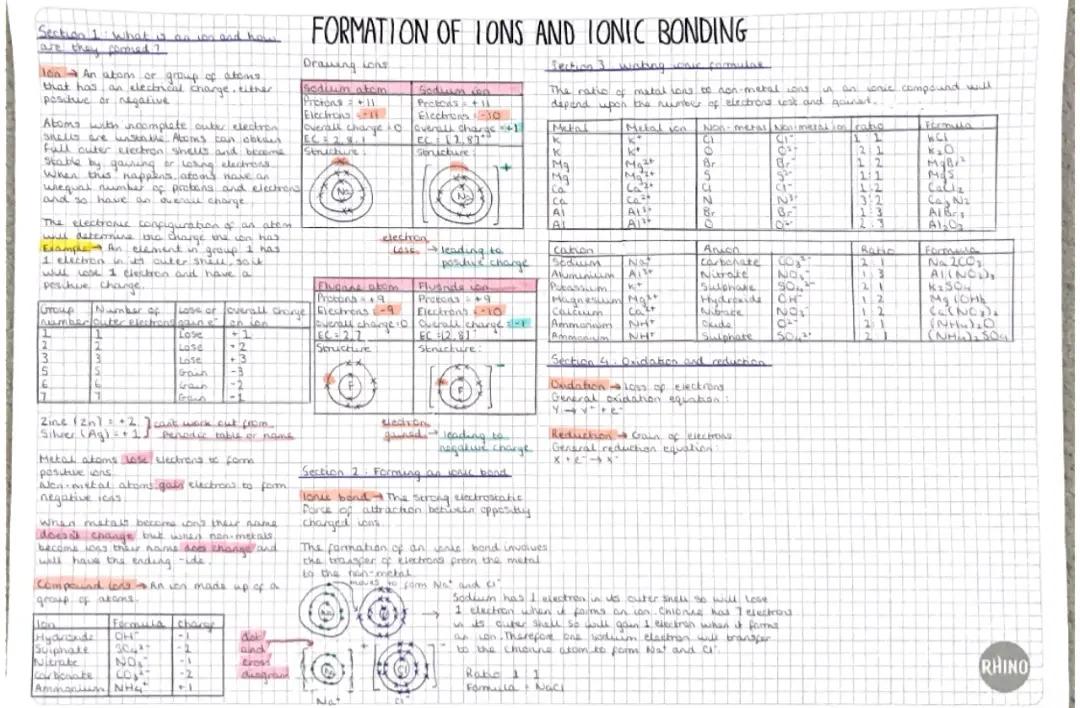 FORMATION OF IONS AND IONIC BONDING
Section 1: What is an ion and how
are they formed?
Ion → An atom or group of atoms
that has an electrical charge, either
positive or negative
Atoms with incomplete outer electron
shells are unstable. Atoms can obtain
full outer electron shells and become
stable by gaining or losing electrons.
When this happens, atoms have an
unequal number of protons and electrons
and so have an overall charge.
The electronic configuration of an atom
will determine the charge the ion has
Example → An element in group 1 has
1 electron in its outer shell, so it
will lose 1 electron and have a
positive charge.
Group number | Number of outer electrons | Lose or gain e⁻ | Overall charge on ion
1 | 1 | Lose | +1
2 | 2 | Lose | +2
3 | 3 | Lose | +3
5 | 5 | Gain | -3
6 | 6 | Gain | -2
7 | 7 | Gain | -1
Zinc (Zn) = +2 ] can't work out from
Silver (Ag) = +1 ] periodic table or name
Metal atoms lose electrons to form
positive ions.
Non-metal atoms gain electrons to form
negative ions.
When metals become ions their name
doesn't change but when non-metals
become ions their name does change and
will have the ending -ide.
Compound ions → An ion made up of a
group of atoms.
Ion | Formula | Charge
Hydroxide | OH⁻ | -1
Sulphate | SO₄²⁻ | -2
Nitrate | NO₃⁻ | -1
Carbonate | CO₃²⁻ | -2
Ammonium | NH₄⁺ | +1
Drawing ions
Sodium atom | Sodium ion
Protons = +11 | Protons = +11
Electrons = -11 | Electrons = -10
Overall charge = 0 | Overall charge = +1
EC = 2.8.1 | EC = [2.8]⁺
Structure: | Structure:
Na | Na +
electron
lose → leading to
positive charge
Fluorine atom | Fluoride ion
Protons = +9 | Protons = +9
Electrons = -9 | Electrons = -10
Overall charge = 0 | Overall charge = -1
EC = 2.7 | EC = [2.8]⁻
Structure | Structure:
F | F -
electron
gained → leading to
negative charge
Section 2: Forming an ionic bond
Ionic bond → The strong electrostatic
force of attraction between oppositely
charged ions
The formation of an ionic bond involves
the transfer of electrons from the metal
to the non-metal
moves to form Na⁺ and Cl⁻
Na Cl
dot
and
cross
diagram
Na + Cl -
Na⁺ Cl⁻
→ Sodium has 1 electron in its outer shell so will lose
1 electron when it forms an ion. Chlorine has 7 electrons
in its outer shell so will gain 1 electron when it forms
an ion. Therefore one sodium electron will transfer
to the chlorine atom to form Na⁺ and Cl⁻.
Ratio 1:1
Formula = NaCl
Section 3: Writing ionic formulae
The ratio of metal ions to non-metal ions in an ionic compound will
depend upon the number of electrons lost and gained.
Metal | Metal ion | Non-metal | Non-metal ion | ratio | Formula
K | K⁺ | Cl | Cl⁻ | 1:1 | KCl
K | K⁺ | O | O²⁻ | 2:1 | K₂O
Mg | Mg²⁺ | Br | Br⁻ | 1:2 | MgBr²
Mg | Mg²⁺ | S | S²⁻ | 1:1 | MgS
Ca | Ca²⁺ | Cl | Cl⁻ | 1:2 | CaCl₂
Ca | Ca²⁺ | N | N³⁻ | 3:2 | Ca₃N₂
Al | Al³⁺ | Br | Br⁻ | 1:3 | AlBr₃
Al | Al³⁺ | O | O²⁻ | 2:3 | Al₂O₃
Cation | Anion | Ratio | Formula
Sodium | Na⁺ | Carbonate | CO₃²⁻ | 2:1 | Na₂CO₃
Aluminium | Al³⁺ | Nitrate | NO₃⁻ | 1:3 | Al(NO₃)₃
Potassium | K⁺ | Sulphate | SO₄²⁻ | 2:1 | K₂SO₄
Magnesium | Mg²⁺ | Hydroxide | OH⁻ | 1:2 | Mg(OH)₂
Calcium | Ca²⁺ | Nitrate | NO₃⁻ | 1:2 | Ca(NO₃)₂
Ammonium | NH⁺ | Oxide | O²⁻ | 2:1 | (NH₄)₂O
Ammonium | NH⁺ | Sulphate | SO₄²⁻ | 2:1 | (NH₄)₂SO₄
Section 4: Oxidation and reduction
Oxidation → Loss of electrons
General oxidation equation:
Y → Y⁺ + e⁻
Reduction → Gain of electrons
General reduction equation:
X + e⁻ → X⁻
RHINO